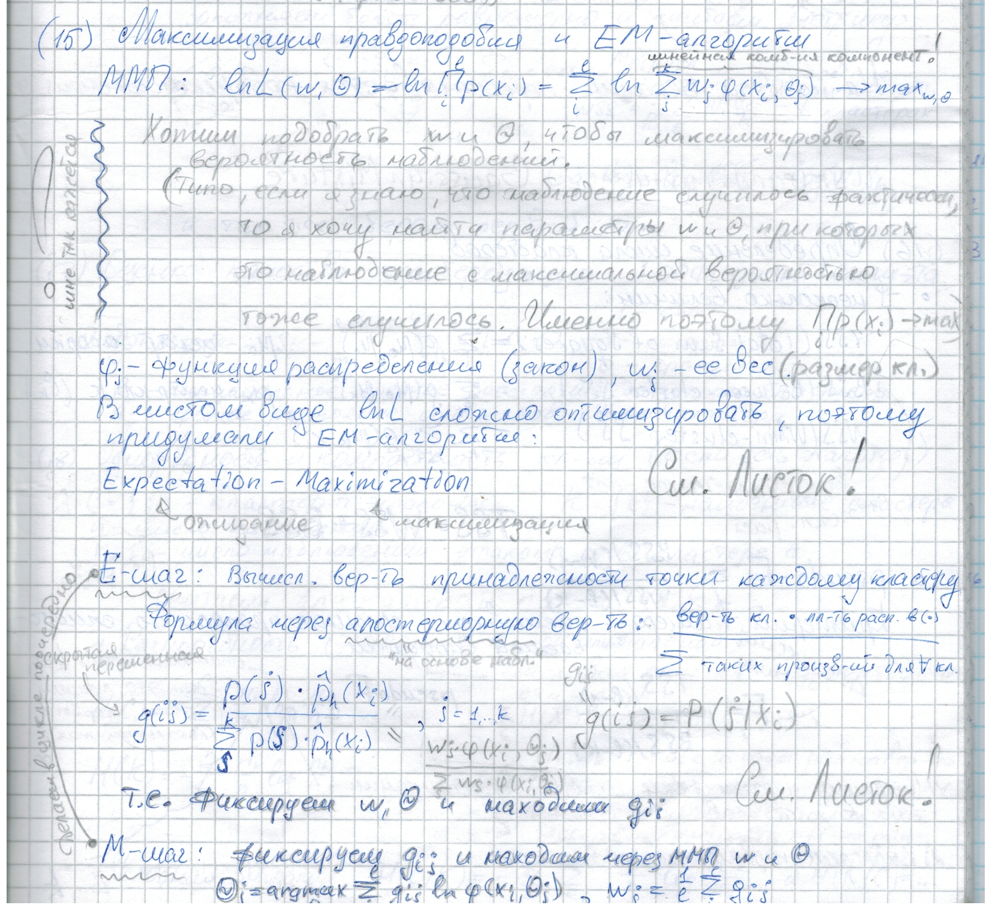 (15) Максимизация правдоподобия и EM-алгоритм
линейная комб-ия компонент!
ММП: lnL(w,Θ) = ln∏p(xᵢ) = Σᵢˡ ln Σⱼᵏ wⱼ φ(xᵢ,Θⱼ) → max w,Θ
Хотим подобрать w и Θ, чтобы максимизировать
вероятность наблюдений.
(Типо, если я знаю, что наблюдение случилось фактически,
то я хочу найти параметры w и Θ, при которых
это наблюдение с максимальной вероятностью
тоже случилось. Именно поэтому ∏p(xᵢ)→max)
мне так кажется
φⱼ - функция распределения (закон), wⱼ - ее вес (размер кл.)
В чистом виде lnL сложно оптимизировать, поэтому
придумали EM-алгоритм:
Expectation - Maximization
ожидание максимизация
См. Листок!
E-шаг: Вычисл. вер-ть принадлежности точки каждому кластеру
Формула через апостериорную вер-ть: вер-ть кл. • пл-ть расп. в(•)
Σ таких произв-ий для ∀ кл.
"на основе набл."
скрытая
переменная
g(ij) = p(j)·p̂ₕ(xᵢ) / Σ p(s)·p̂ₕ(xᵢ), j=1,..k
wⱼ·φ(xᵢ,Θⱼ) / Σ wₛ·φ(xᵢ,Θⱼ)
gᵢⱼ
g(ij) = P(j|xᵢ)
См. Листок!
т.е. фиксируем w, Θ и находим gᵢⱼ
Сделаем в цикле поочередно
M-шаг: фиксируем gᵢⱼ и находим через ММП w и Θ
Θⱼ=argmax Σ gᵢⱼ ln φ(xᵢ,Θⱼ), wⱼ = 1/ℓ Σ gᵢⱼ